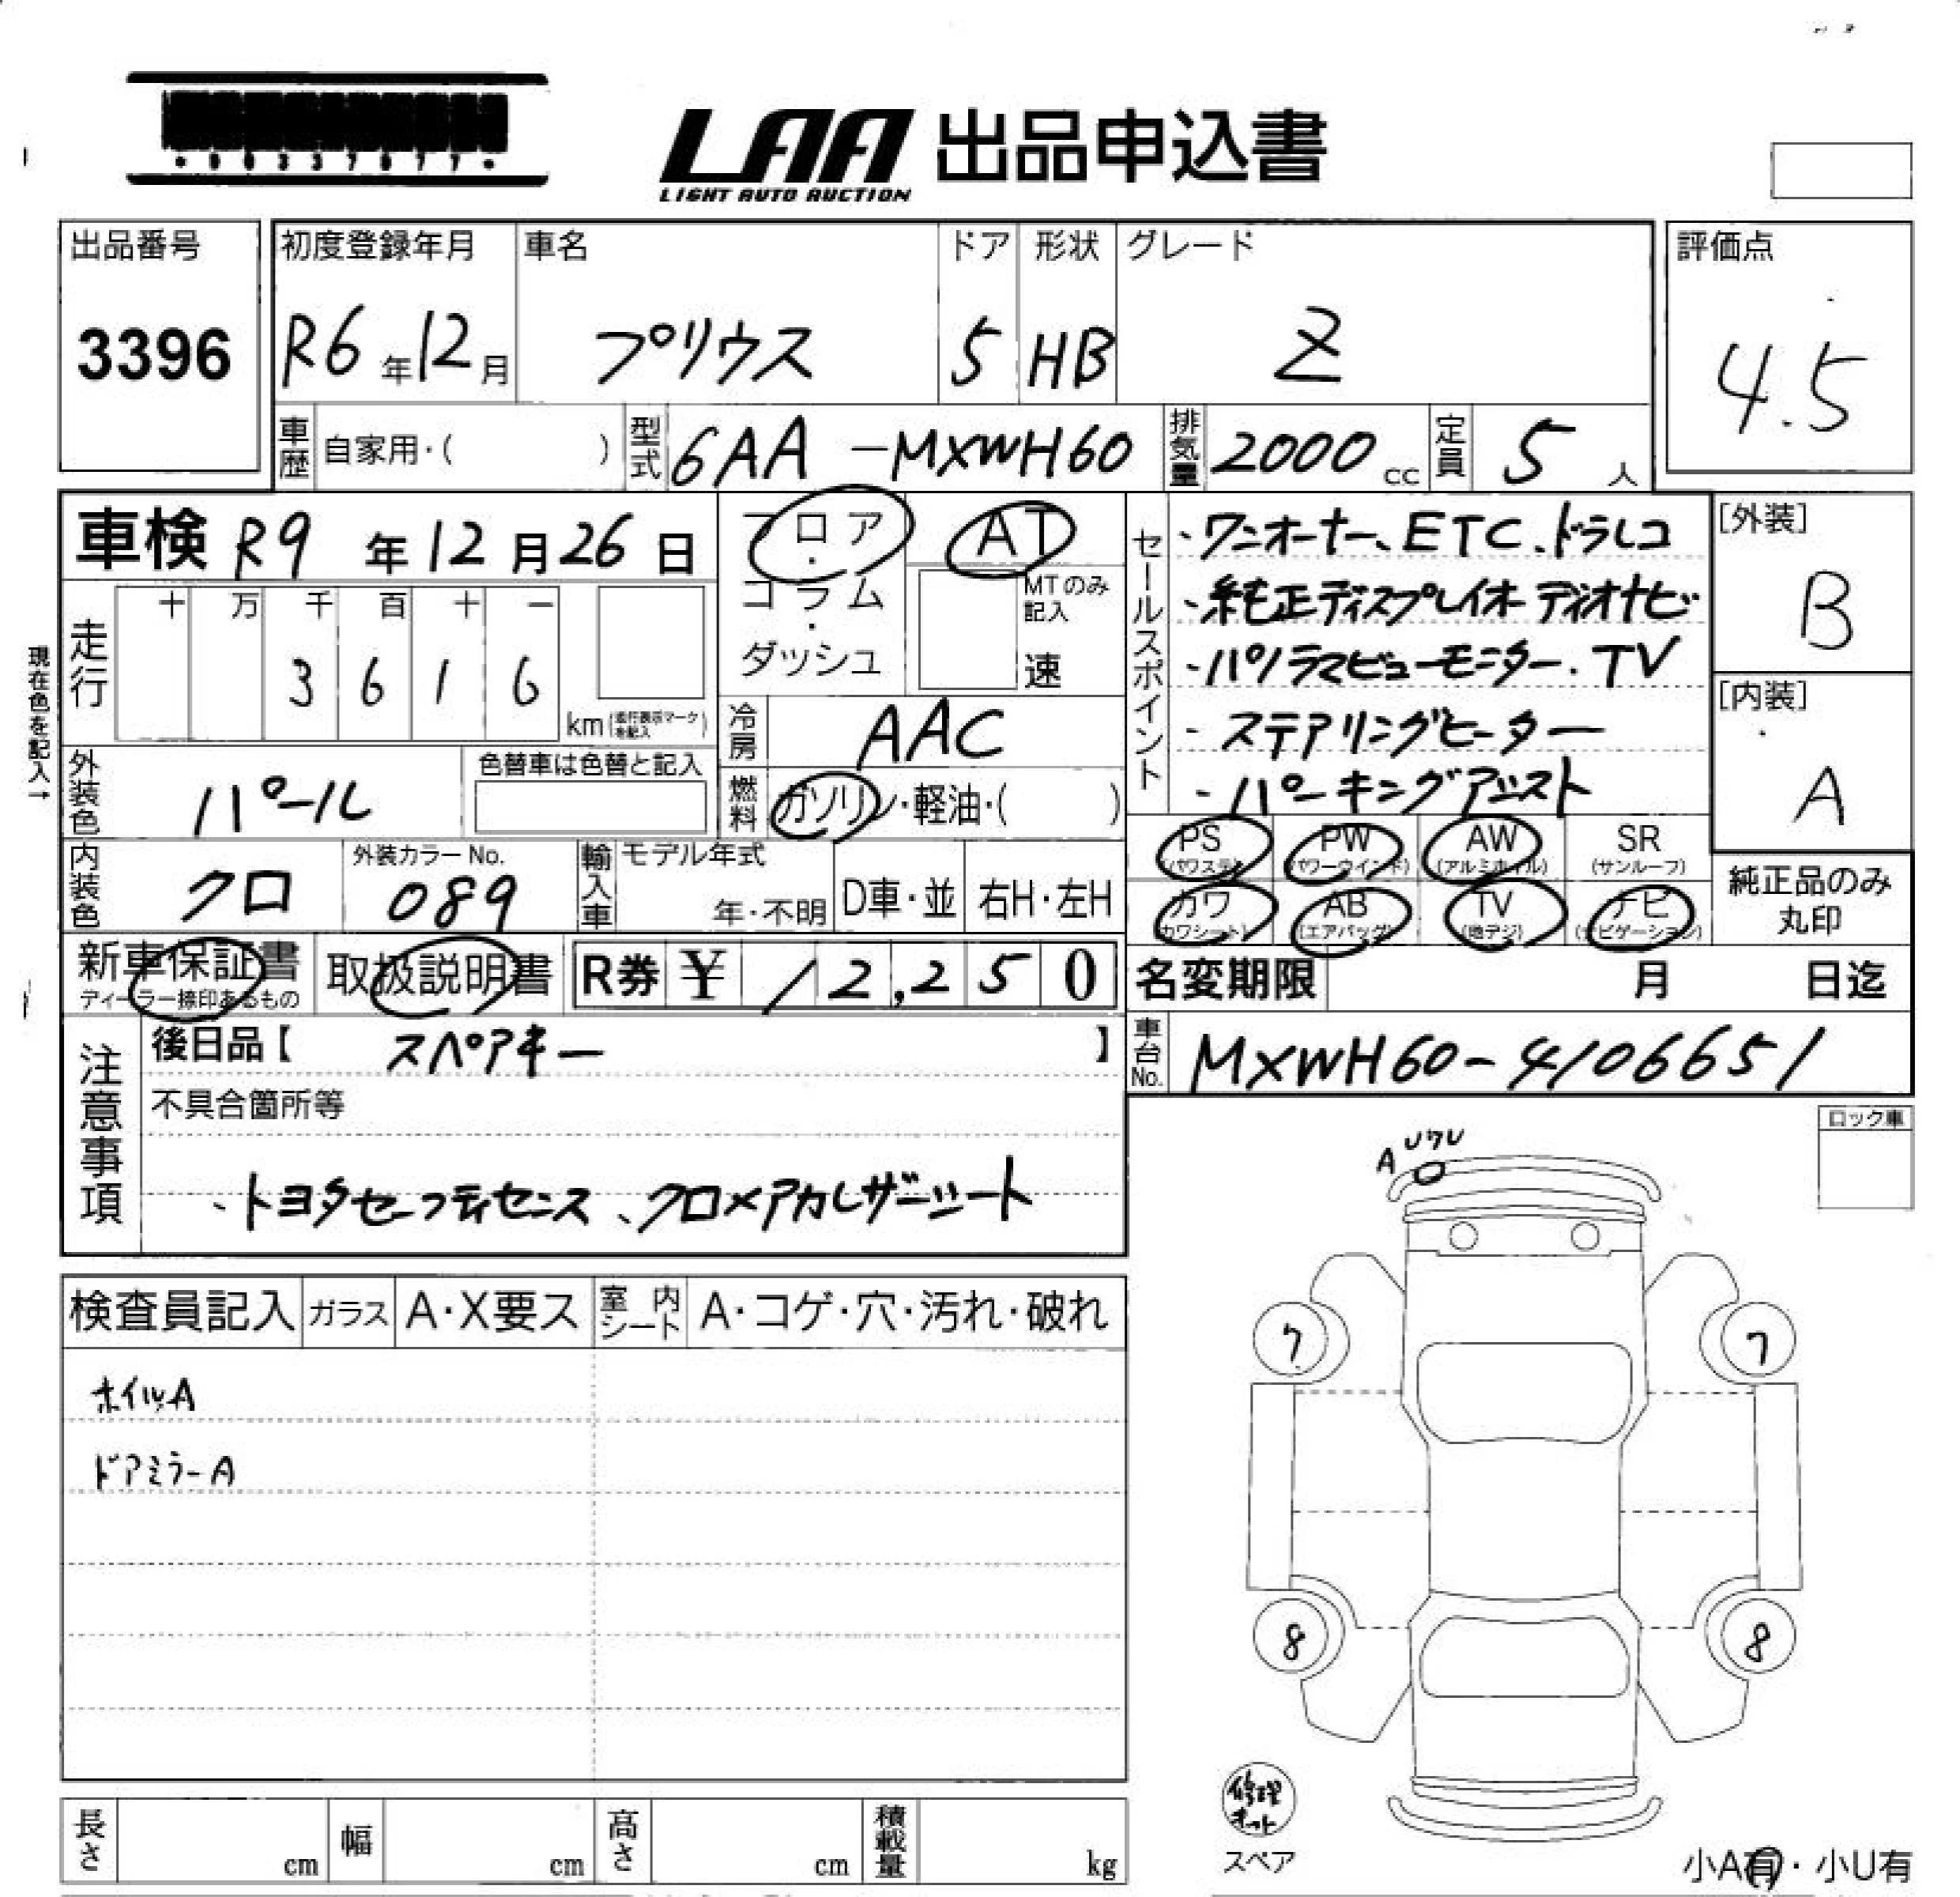 *00337077*
LAA 出品申込書
LIGHT AUTO AUCTION
出品番号
3396
初度登録年月
R6年12月
車名
プリウス
ドア
5
形状
HB
グレード
Z
評価点
4.5
車歴 自家用・( )
型式 6AA-MXWH60
排気量 2000 cc
定員 5 人
車検 R9年12月26日
フロア・コラム・ダッシュ
AT
MTのみ記入
速
セールスポイント
・ワンオーナー、ETC、ドラレコ
・純正ディスプレイオーディオナビ
・パノラマビューモニター・TV
・ステアリングヒーター
・パーキングアシスト
[外装]
B
[内装]
A
現在色を記入→
走行
十 万 千 百 十 一
3 6 1 6
km (走行表示マークを記入)
冷房 AAC
外装色 パール
色替車は色替と記入
燃料 ガソリン・軽油・( )
内装色 クロ
外装カラーNo.
089
輸入車 モデル年式
年・不明
D車・並
右H・左H
PS (パワステ)
PW (パワーウインド)
AW (アルミホイル)
SR (サンルーフ)
カワ (カワシート)
AB (エアバッグ)
TV (地デジ)
ナビ (ナビゲーション)
純正品のみ
丸印
新車保証書
ディーラー捺印あるもの
取扱説明書
R券 ¥ 12,250
名変期限 月 日迄
注意事項
後日品【 スペアキー 】
不具合箇所等
、トヨタセーフティセンス、クロ×アカレザーシート
車台No. MXWH60-4106651
ロック車
A
検査員記入 ガラス A・X要ス 室内シート A・コゲ・穴・汚れ・破れ
ホイルA
ドアミラーA
7 7
8 8
修理キット
スペア
長さ cm 幅 cm 高さ cm 積載量 kg
小A有・小U有